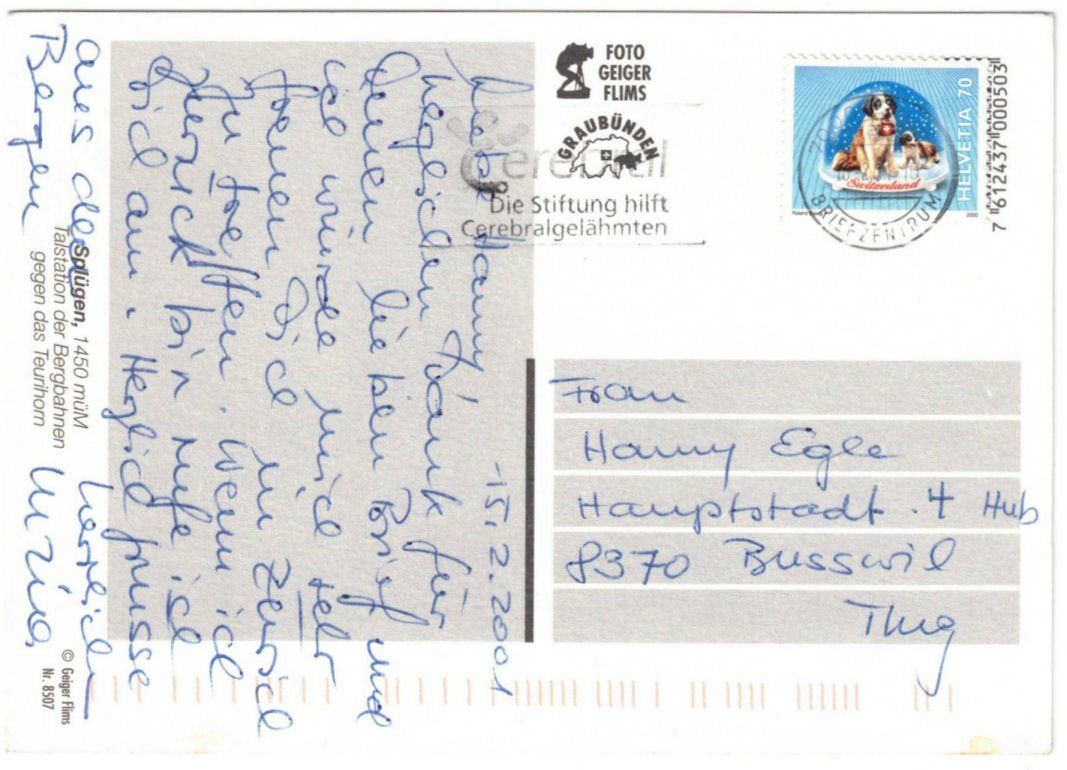 - 15. 2. 2001
Liebe Hanny
herzlichen Dank für
Deinen lieben Brief und
ich würde mich sehr
freuen Dich in Zürich
zu treffen. Wenn ich
zurück bin rufe ich
Dich an. Herzlich grüsse
aus den
Bergen
herzlich
Splügen, 1450 müM
Talstation der Bergbahnen
gegen das Teurihorn
© Geiger Flims
Nr. 8507
FOTO
GEIGER
FLIMS
GRAUBÜNDEN
cerebral
Die Stiftung hilft
Cerebralgelähmten
HELVETIA 70
Switzerland
2000
BRIEFZENTRUM
7 612437 000503
Frau
Hanny Egle
Hauptstadt. 4 Hub
8370 Busswil
Thug